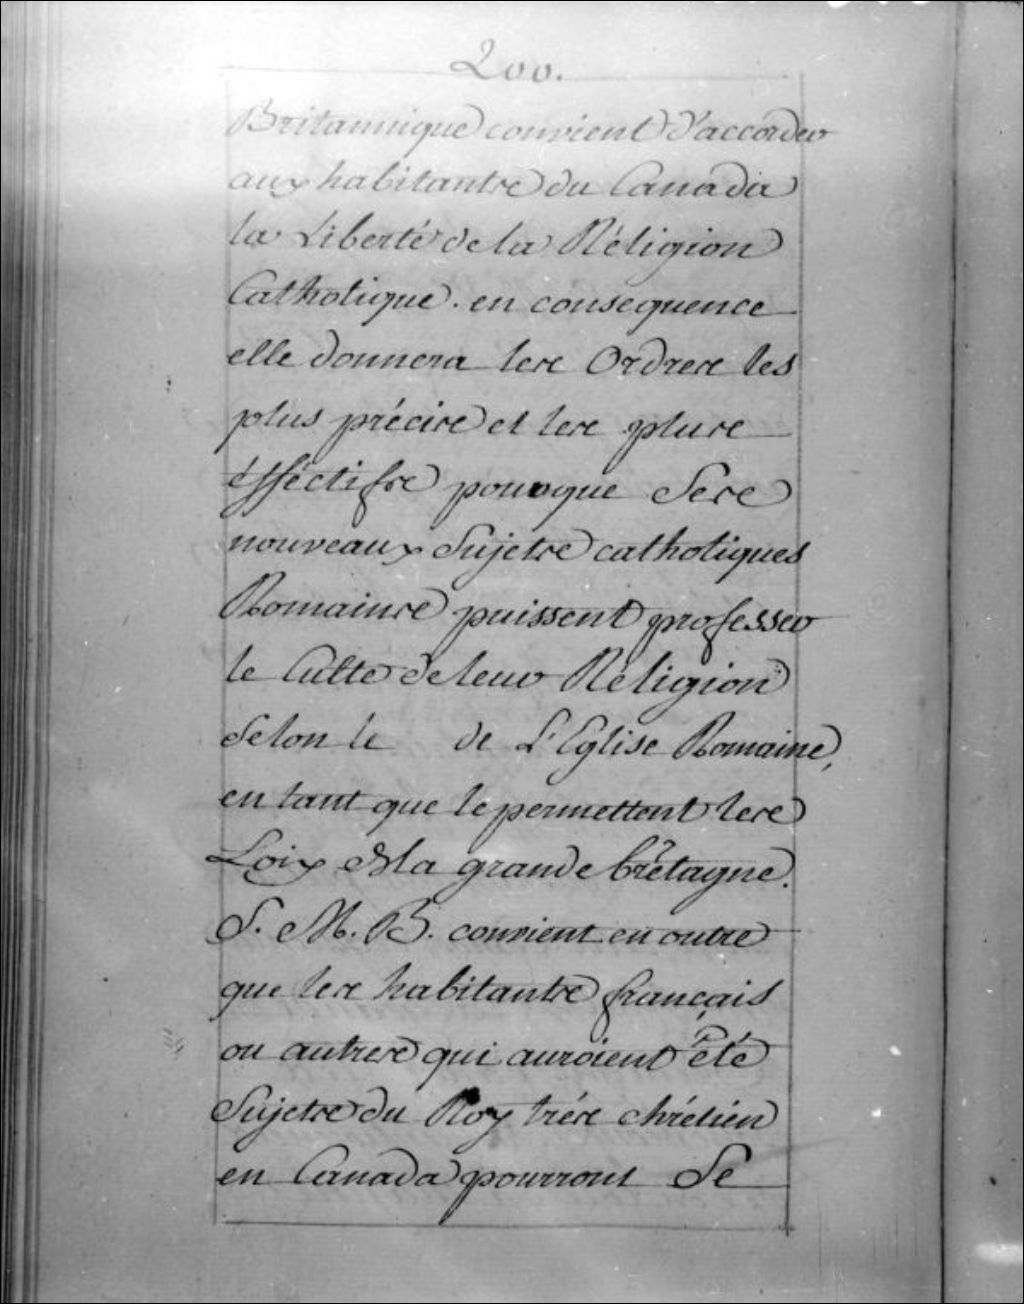 200.
Britannique convient d'accorder
aux habitants du Canada
la Liberté de la Réligion
Catholique. en consequence
elle donnera les Ordres les
plus précis et les plus
éfféctifs pour que Ses
nouveaux Sujets catholiques
Romains puissent professer
le Culte de leur Réligion
Selon le de L'Eglise Romaine,
en tant que le permettent les
Loix de la grande brêtagne.
S. M. B. convient en outre
que les habitants français
ou autres qui auroient été
Sujets du Roy trés chrétien
en Canada pourront Se